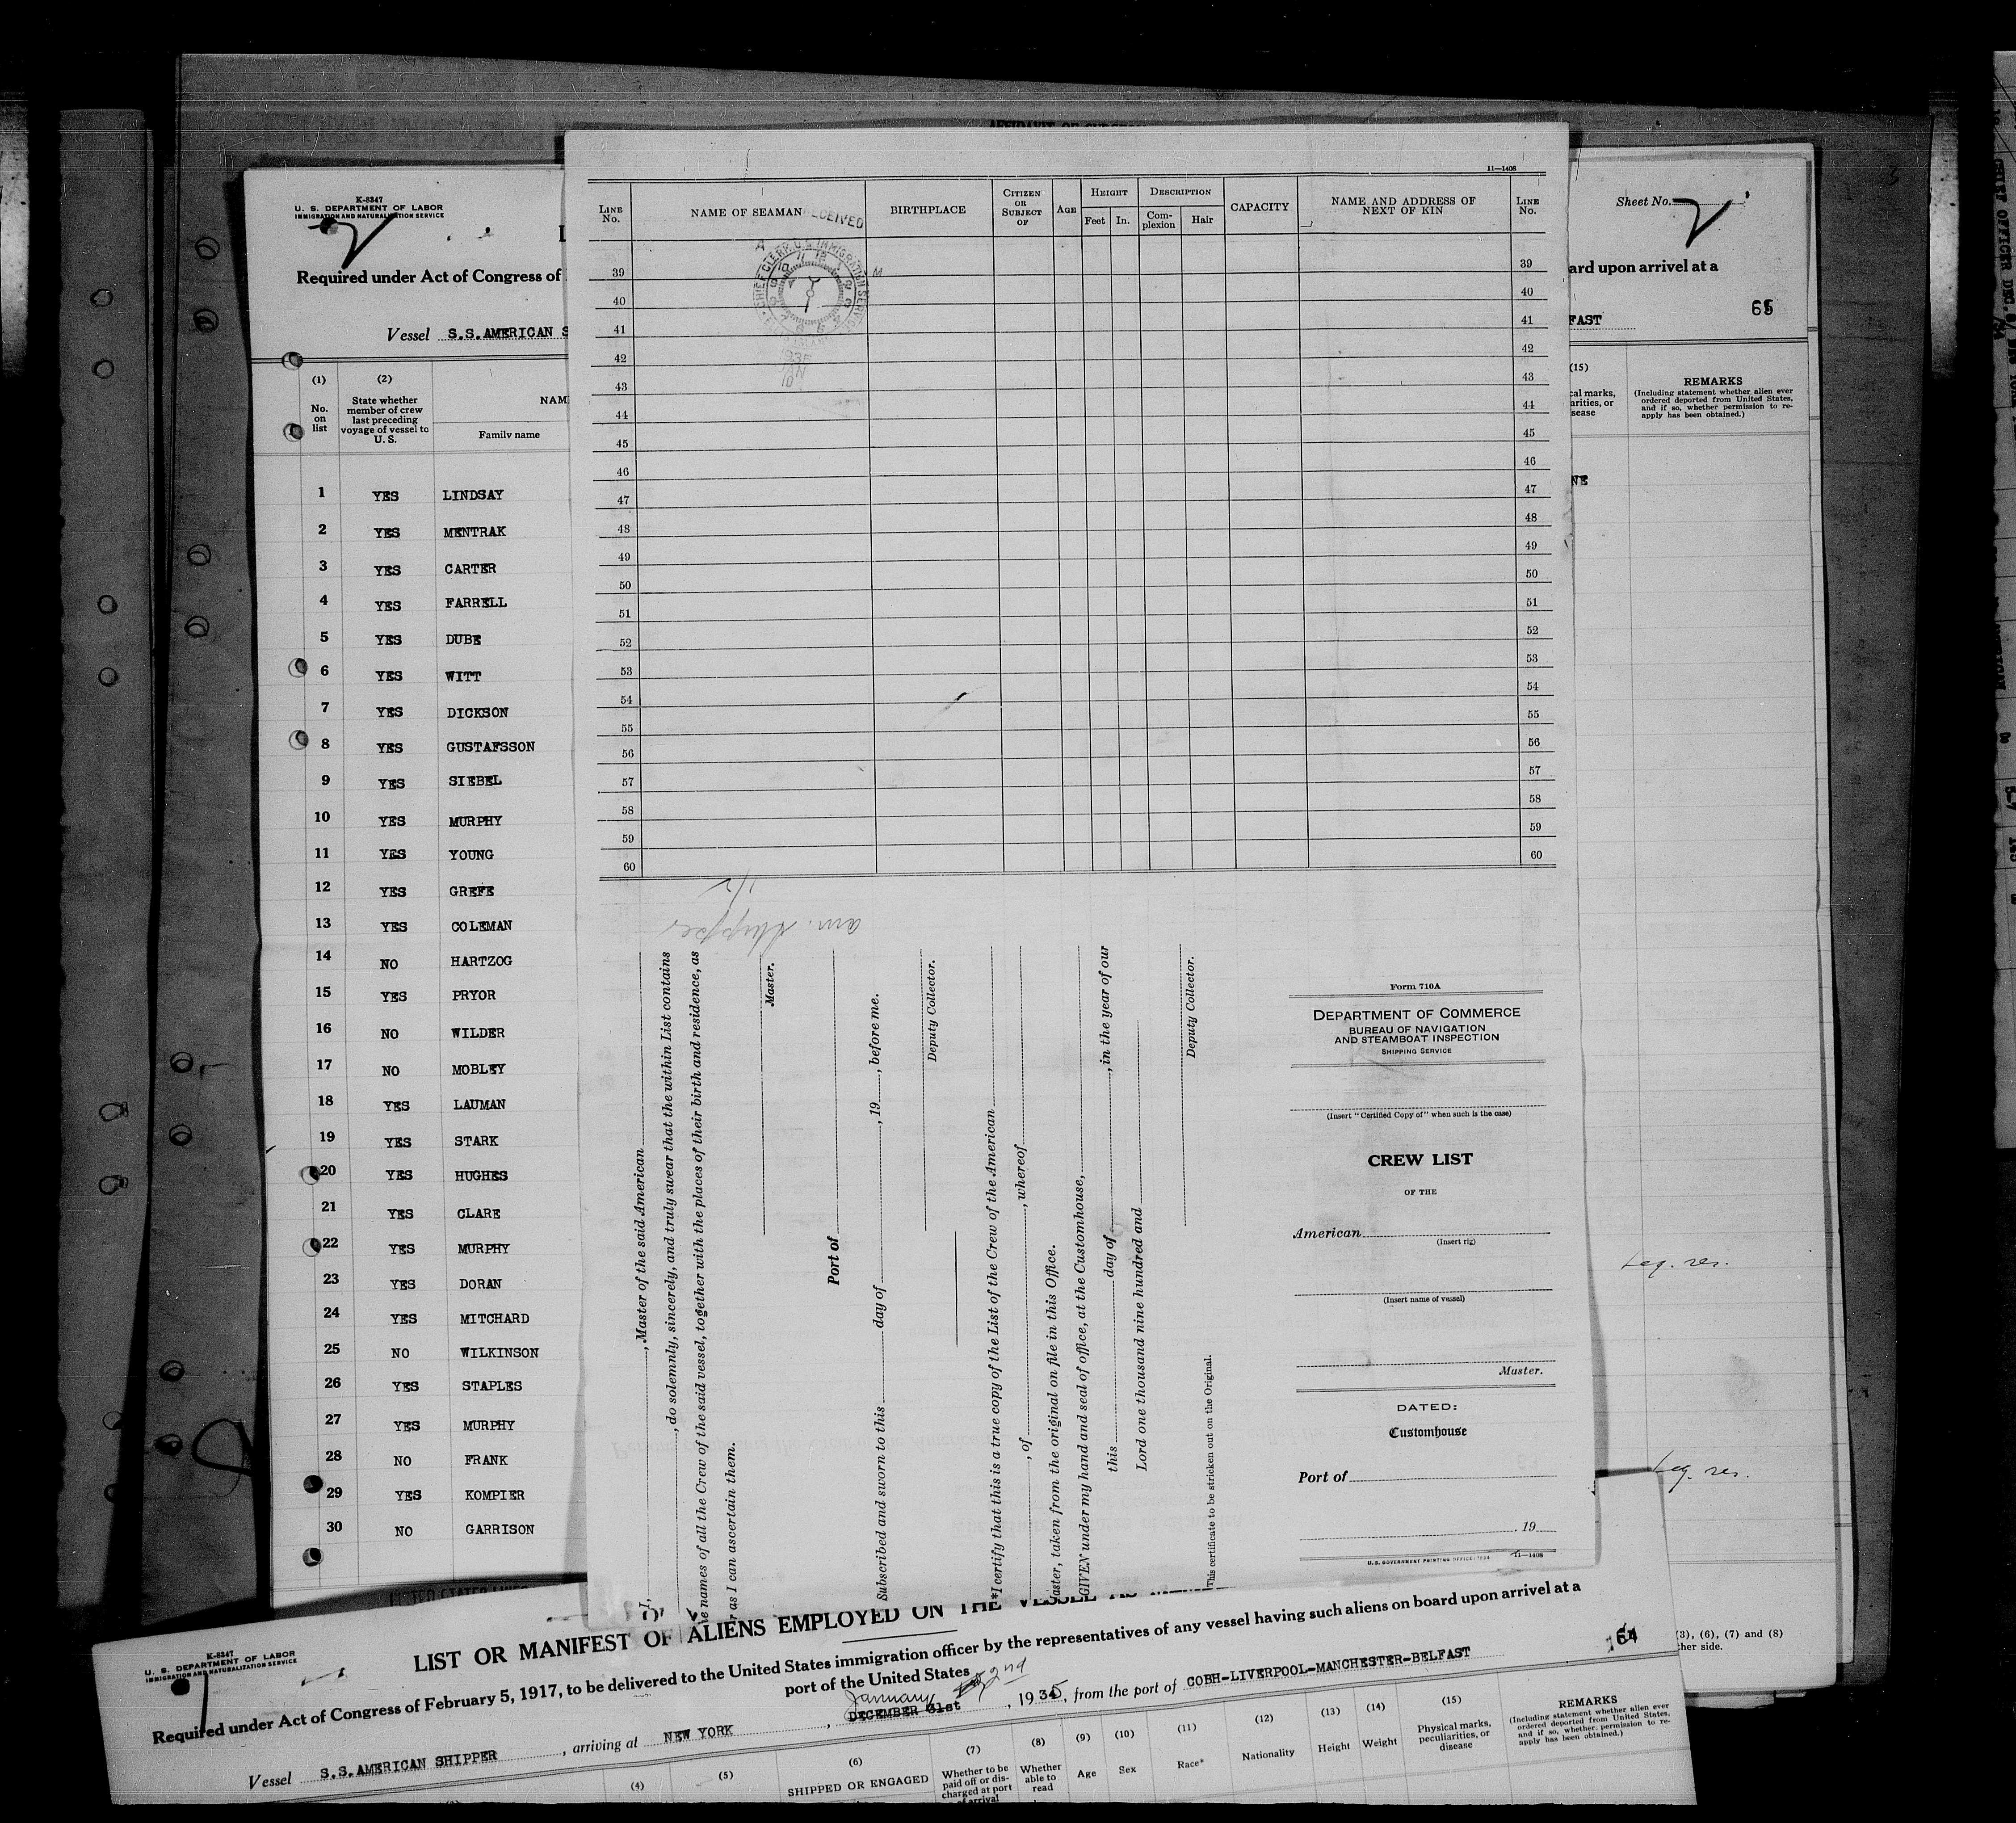 K-8347
U. S. DEPARTMENT OF LABOR
IMMIGRATION AND NATURALIZATION SERVICE
Required under Act of Congress of
Vessel S.S.AMERICAN S
(1)
No.
on
list
(2)
State whether
member of crew
last preceding
voyage of vessel to
U. S.
NAM
Family name
1 YES LINDSAY
2 YES MENTRAK
3 YES CARTER
4 YES FARRELL
5 YES DUBE
6 YES WITT
7 YES DICKSON
8 YES GUSTAFSSON
9 YES SIEBEL
10 YES MURPHY
11 YES YOUNG
12 YES GREFE
13 YES COLEMAN
14 NO HARTZOG
15 YES PRYOR
16 NO WILDER
17 NO MOBLEY
18 YES LAUMAN
19 YES STARK
20 YES HUGHES
21 YES CLARE
22 YES MURPHY
23 YES DORAN
24 YES MITCHARD
25 NO WILKINSON
26 YES STAPLES
27 YES MURPHY
28 NO FRANK
29 YES KOMPIER
30 NO GARRISON
11—1408
LINE
No.
NAME OF SEAMAN
BIRTHPLACE
CITIZEN
OR
SUBJECT
OF
AGE
HEIGHT
Feet In.
DESCRIPTION
Com-
plexion
Hair
CAPACITY
NAME AND ADDRESS OF
NEXT OF KIN
LINE
No.
RECEIVED
CHIEF CLERK U.S. IMMIGRATION SERVICE
1935
JAN
10
39 39
40 40
41 41
42 42
43 43
44 44
45 45
46 46
47 47
48 48
49 49
50 50
51 51
52 52
53 53
54 54
55 55
56 56
57 57
58 58
59 59
60 60
am. Shipper
I,
, Master of the said American
, do solemnly, sincerely, and truly swear that the within List contains
e names of all the Crew of the said vessel, together with the places of their birth and residence, as
r as I can ascertain them.
Master.
Port of
Subscribed and sworn to this day of , 19 , before me.
Deputy Collector.
*I certify that this is a true copy of the List of the Crew of the American
, of , whereof
aster, taken from the original on file in this Office.
GIVEN under my hand and seal of office, at the Customhouse,
this day of , in the year of our
Lord one thousand nine hundred and
Deputy Collector.
This certificate to be stricken out on the Original.
Form 710A
DEPARTMENT OF COMMERCE
BUREAU OF NAVIGATION
AND STEAMBOAT INSPECTION
SHIPPING SERVICE
(Insert "Certified Copy of" when such is the case)
CREW LIST
OF THE
American
(Insert rig)
(Insert name of vessel)
Master.
DATED:
Customhouse
Port of
, 19
U.S. GOVERNMENT PRINTING OFFICE: 1934 11—1408
Sheet No.
ard upon arrival at a
65
FAST
(15)
cal marks,
arities, or
sease
REMARKS
(Including statement whether alien ever
ordered deported from United States,
and if so, whether permission to re-
apply has been obtained.)
NE
Leg. res.
Leg. res.
(3), (6), (7) and (8)
ther side.
K-8347
U. S. DEPARTMENT OF LABOR
IMMIGRATION AND NATURALIZATION SERVICE
LIST OR MANIFEST OF ALIENS EMPLOYED ON THE VESSEL AS
Required under Act of Congress of February 5, 1917, to be delivered to the United States immigration officer by the representatives of any vessel having such aliens on board upon arrival at a
port of the United States
64
January 2nd
Vessel S.S.AMERICAN SHIPPER , arriving at NEW YORK , DECEMBER 31st , 1935, from the port of COBH-LIVERPOOL-MANCHESTER-BELFAST
(4)
(5)
(6)
SHIPPED OR ENGAGED
(7)
Whether to be
paid off or dis-
charged at port
of arrival
(8)
Whether
able to
read
(9)
Age
(10)
Sex
(11)
Race*
(12)
Nationality
(13)
Height
(14)
Weight
(15)
Physical marks,
peculiarities, or
disease
REMARKS
(Including statement whether alien ever
ordered deported from United States,
and if so, whether permission to re-
apply has been obtained.)